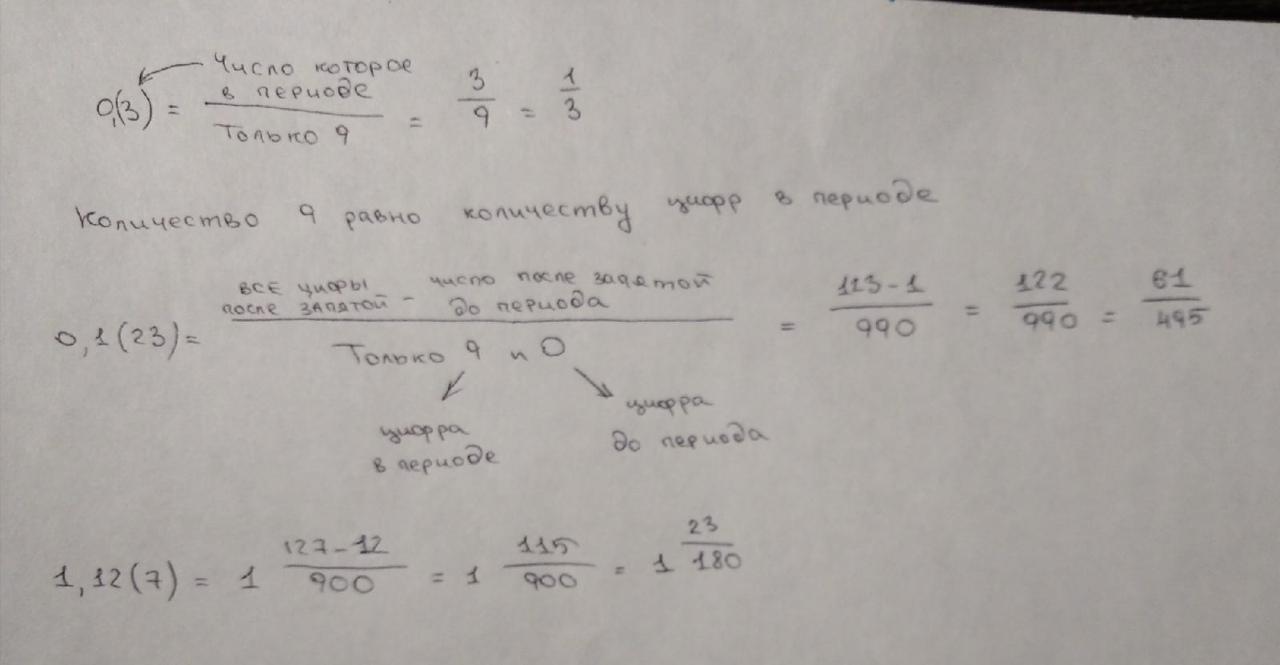 Число которое
в периоде
0,(3) = ――― = 3/9 = 1/3
только 9
Количество 9 равно количеству цифр в периоде
все цифры после запятой – число после запятой до периода
0,1(23) = ――― = 113-1/990 = 122/990 = 61/495
Только 9 и 0
цифра в периоде
цифра до периода
1,12(7) = 1 127-12/900 = 1 115/900 = 1 23/180